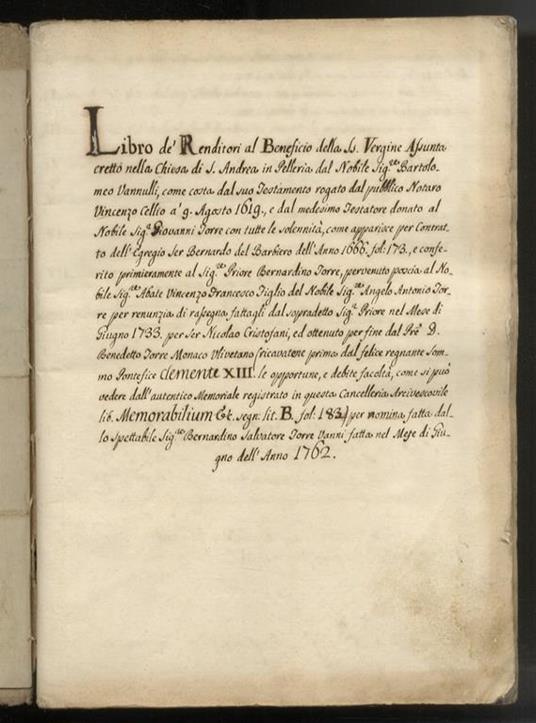 Libro de' Renditori al Beneficio della SS. Vergine Assunta
eretto nella Chiesa di S. Andrea in Pelleria dal Nobile Sig.re Bartolo-
meo Vannulli, come costa dal suo Testamento rogato dal pubblico Notaro
Vincenzo Cellio a' 9. Agosto 1619., e dal medesimo Testatore donato al
Nobile Sig.r Giovanni Torre con tutte le solennità, come apparisce per Contrat-
to dell' Egregio Ser Bernardo del Barbiero dell' Anno 1666. fol: 173., e confe-
rito primieramente al Sig.re Priore Bernardino Torre, pervenuto poscia al No-
bile Sig.re Abate Vincenzo Francesco Figlio del Nobile Sig.re Angelo Antonio Tor-
re per renunzia di rassegna fattagli dal sopradetto Sig.r Priore nel Mese di
Giugno 1733. per Ser Nicolao Cristofani, ed ottenuto per fine dal Pre D.
Benedetto Torre Monaco Ulivetano (ricavatene prima dal felice regnante Som-
mo Pontefice Clemente XIII. le opportune, e debite facoltà, come si può
vedere dall' autentico Memoriale registrato in questa Cancelleria Arcivescovile
lib. Memorabilium &c. segn: lit. B. fol: 183) per nomina fatta dal-
lo Spettabile Sig.re Bernardino Salvatore Torre Vanni fatta nel Mese di Giu-
gno dell' Anno 1762.